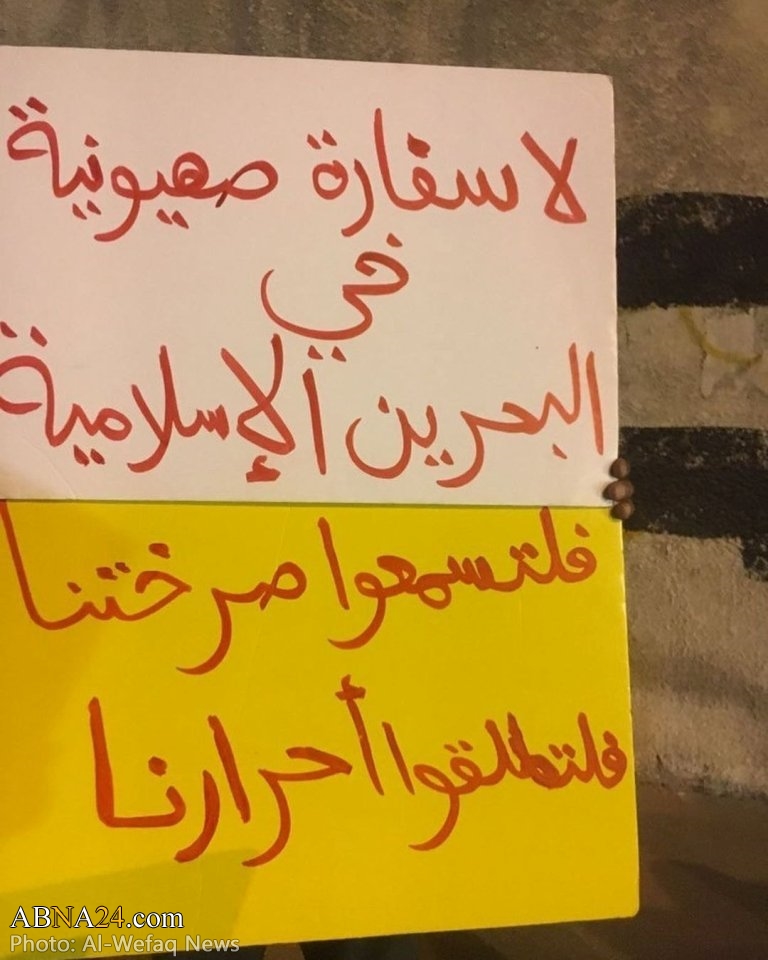 لا سفارة صهيونية
في
البحرين الإسلامية
فلتسمعوا صرختنا
فلتطلقوا أحرارنا
ABNA24.com
Photo: Al-Wefaq News